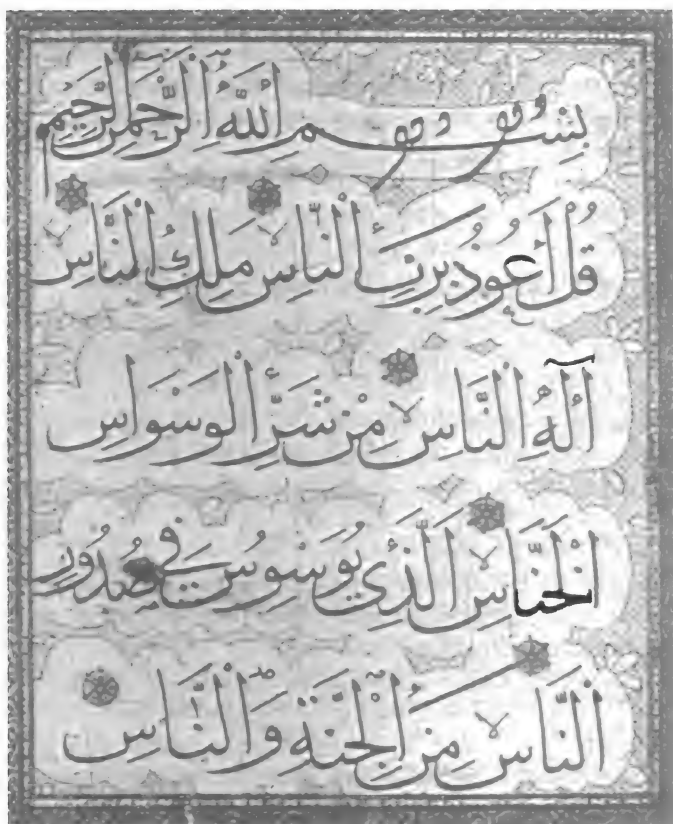 بِسْمِ اللَّهِ الرَّحْمٰنِ الرَّحِيمِ
قُلْ أَعُوذُ بِرَبِّ النَّاسِ مَلِكِ النَّاسِ
إِلٰهِ النَّاسِ مِنْ شَرِّ الْوَسْوَاسِ
الْخَنَّاسِ الَّذِي يُوَسْوِسُ فِي صُدُورِ
النَّاسِ مِنَ الْجِنَّةِ وَالنَّاسِ